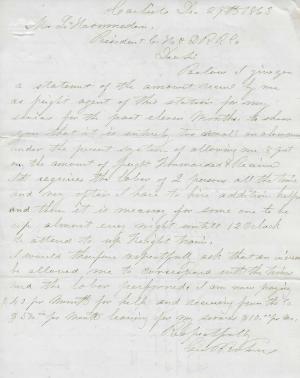 Dec 29th 1863
Mr
President C. H & D R R Co
Dear Sir
Below I give you
a statement of the amount recvd by me
as freight agent of this station for my
services for the past eleven Months. to show
you that it is entirely too small an allowance
under the present system of allowing me 8 pct
on the amount of freight Forwarded &
It requires the labor of 2 persons all the time
and very often I have to hire addition help
and then it is necessary for some one to be
up almost every night until 12 Oclock
to attend to up freight train.
I would therefore respectfully ask that an increase
be allowed me to correspond with the
and the labor performed. I am now paying
per Month for help and receiving from the Co
$50 per Month leaving for my services $10 per mo.
Respectfully